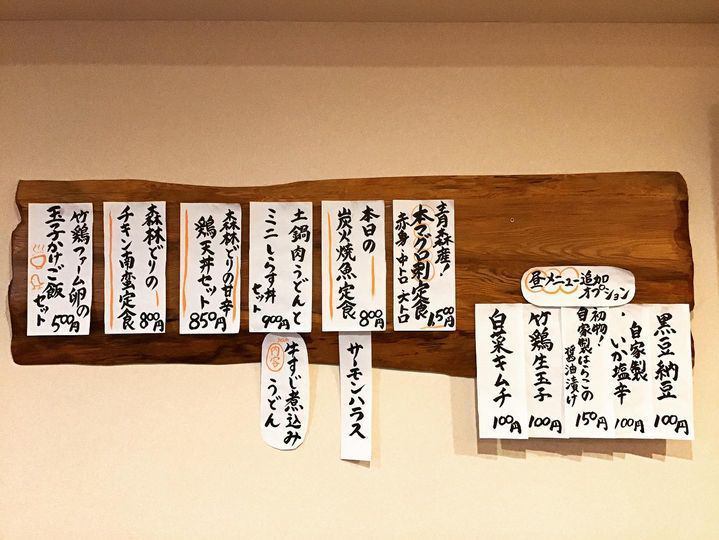 青森産!
本マグロ刺定食
赤身・中トロ・大トロ
1,500円
本日の
炭火焼魚定食
800円
サーモンハラス
土鍋肉うどんと
ミニしらす丼
セット
900円
内容
牛すじ煮込み
うどん
森林どりの甘辛
鶏天丼セット
850円
森林どりの
チキン南蛮定食
800円
竹鶏ファーム卵の
玉子かけご飯
セット
500円
昼メニュー追加
オプション
黒豆納豆
100円
自家製
いか塩辛
100円
初物!
自家製はらこの
醤油漬け
150円
竹鶏生玉子
100円
白菜キムチ
100円